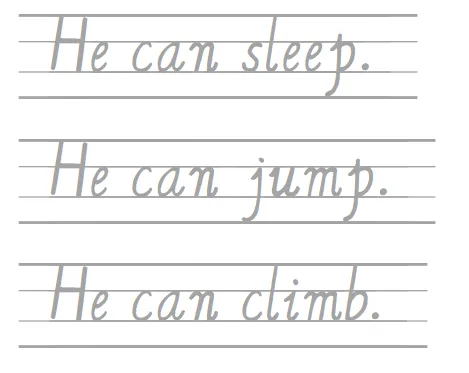 He can sleep.
He can jump.
He can climb.